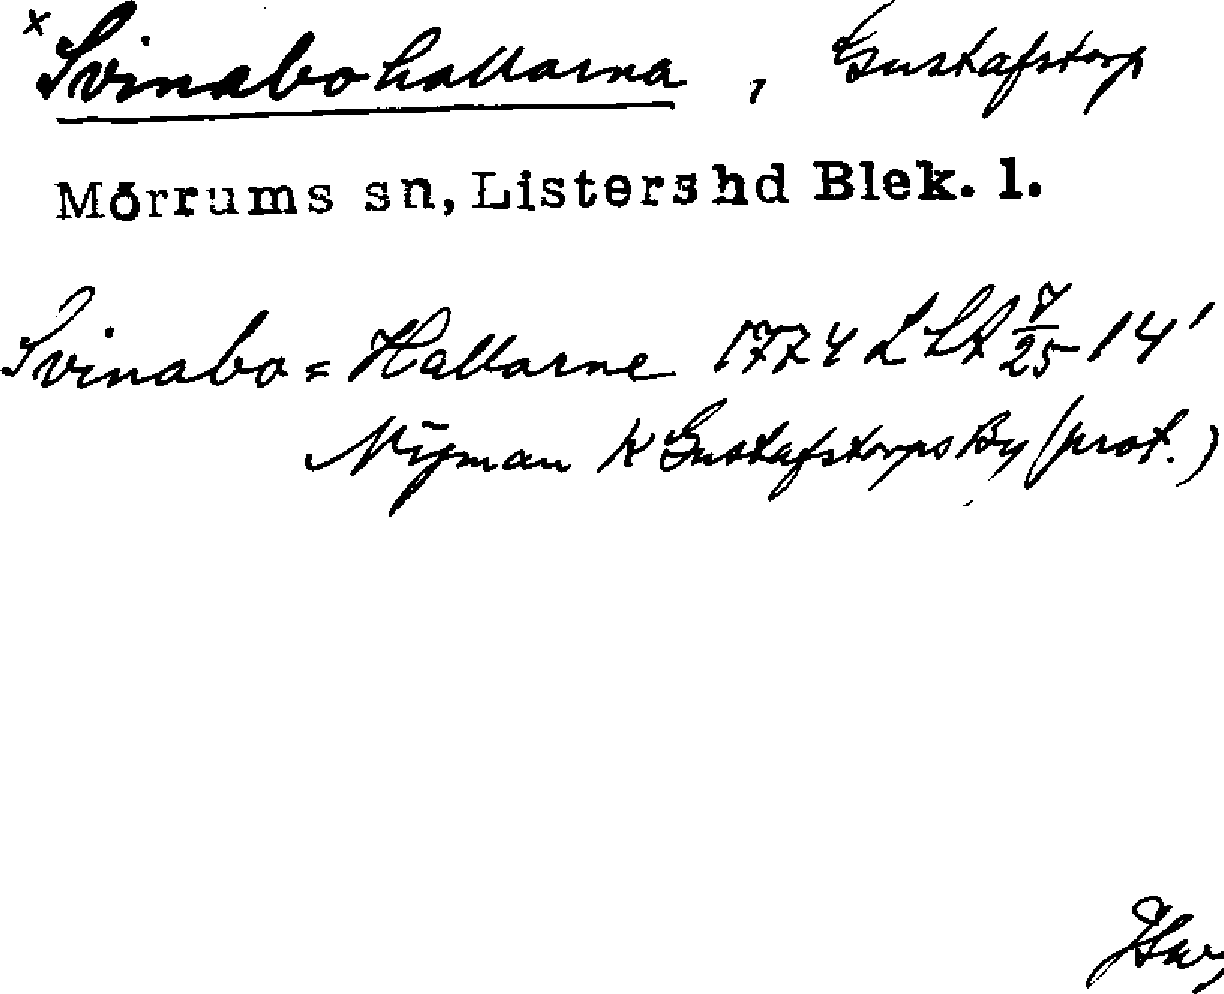 x Svinabohallarna, Gustafstorp
Mörrums sn, Listershd Blek. l.
Svinabo=Hallarne 1774 LSA 7/25 14'
Nÿman k Gustafstorps By (prot.)